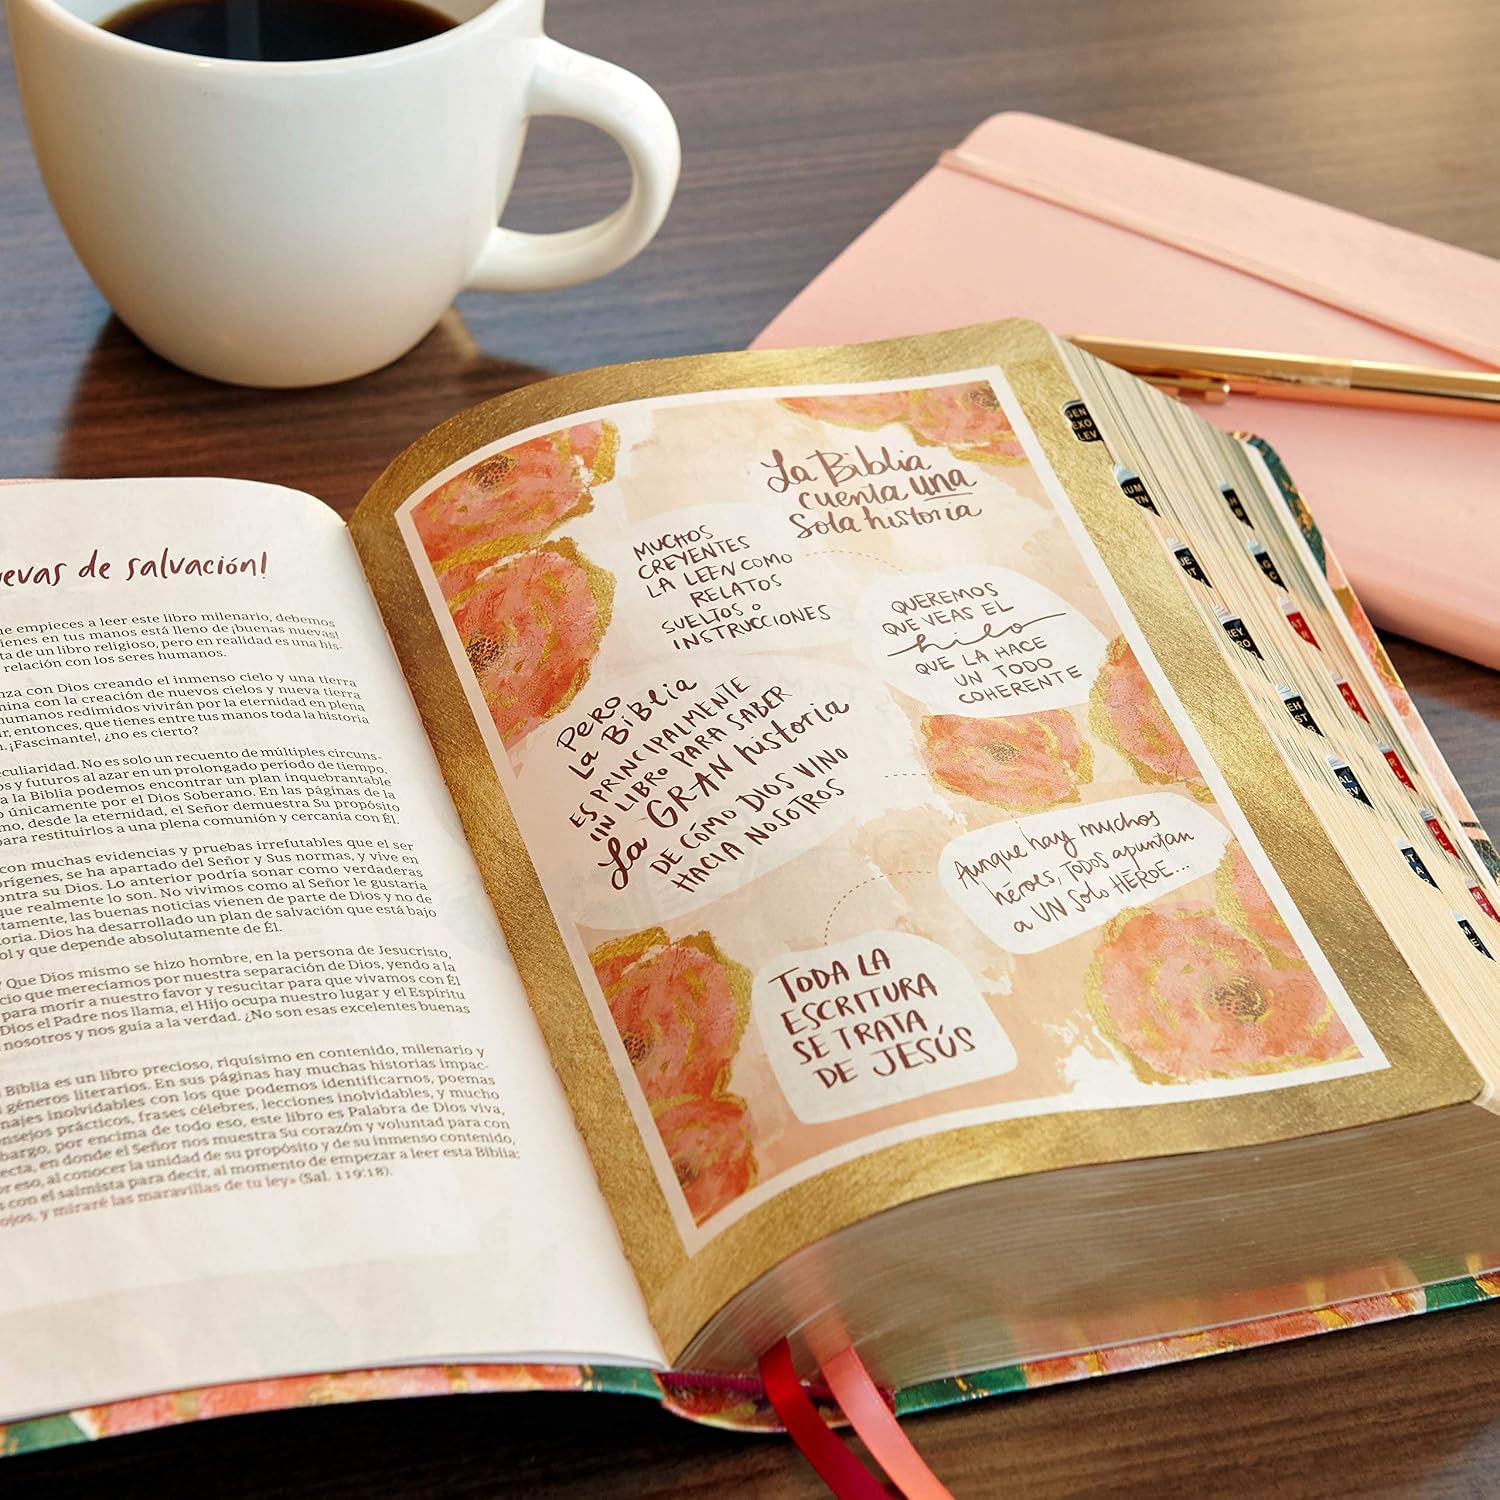 de salvación!
empieces a leer este libro milenario, debemos
tienes en tus manos está lleno de ¡buenas nuevas!
ta de un libro religioso, pero en realidad es una his-
relación con los seres humanos.
con Dios creando el inmenso cielo y una tierra
mina con la creación de nuevos cielos y nueva tierra
humanos redimidos vivirán por la eternidad en plena
ir, entonces, que tienes entre tus manos toda la historia
¡Fascinante!, ¿no es cierto?
eculiaridad. No es solo un recuento de múltiples circuns-
s y futuros al azar en un prolongado período de tiempo.
a la Biblia podemos encontrar un plan inquebrantable
o únicamente por el Dios Soberano. En las páginas de la
mo, desde la eternidad, el Señor demuestra Su propósito
para restituirlos a una plena comunión y cercanía con Él.
con muchas evidencias y pruebas irrefutables que el ser
orígenes, se ha apartado del Señor y Sus normas, y vive en
ontra su Dios. Lo anterior podría sonar como verdaderas
que realmente lo son. No vivimos como al Señor le gustaría
stamente, las buenas noticias vienen de parte de Dios y no de
toria. Dios ha desarrollado un plan de salvación que está bajo
ol y que depende absolutamente de Él.
? Que Dios mismo se hizo hombre, en la persona de Jesucristo,
cio que merecíamos por nuestra separación de Dios, yendo a la
para morir a nuestro favor y resucitar para que vivamos con Él
Dios el Padre nos llama, el Hijo ocupa nuestro lugar y el Espíritu
nosotros y nos guía a la verdad. ¿No son esas excelentes buenas
Biblia es un libro precioso, riquísimo en contenido, milenario y
géneros literarios. En sus páginas hay muchas historias impac-
najes inolvidables con los que podemos identificarnos, poemas
onsejos prácticos, frases célebres, lecciones inolvidables, y mucho
mbargo, por encima de todo eso, este libro es Palabra de Dios viva,
ecta, en donde el Señor nos muestra Su corazón y voluntad para con
or eso, al conocer la unidad de su propósito y de su inmenso contenido,
s con el salmista para decir, al momento de empezar a leer esta Biblia:
ojos, y miraré las maravillas de tu ley» (Sal. 119:18).
La Biblia
cuenta una
Sola historia
MUCHOS
CREYENTES
LA LEEN COMO
RELATOS
SUELTOS o
INSTRUCCIONES
QUEREMOS
QUE VEAS EL
hilo
QUE LA HACE
UN TODO
COHERENTE
PERO
LA BIBLIA
ES PRINCIPALMENTE
UN LIBRO PARA SABER
La GRAN historia
DE CÓMO DIOS VINO
HACIA NOSOTROS
Aunque hay muchos
héroes, TODOS apuntan
a UN SOLO HÉROE...
TODA LA
ESCRITURA
SE TRATA
DE JESÚS
GEN
EXO
LEV